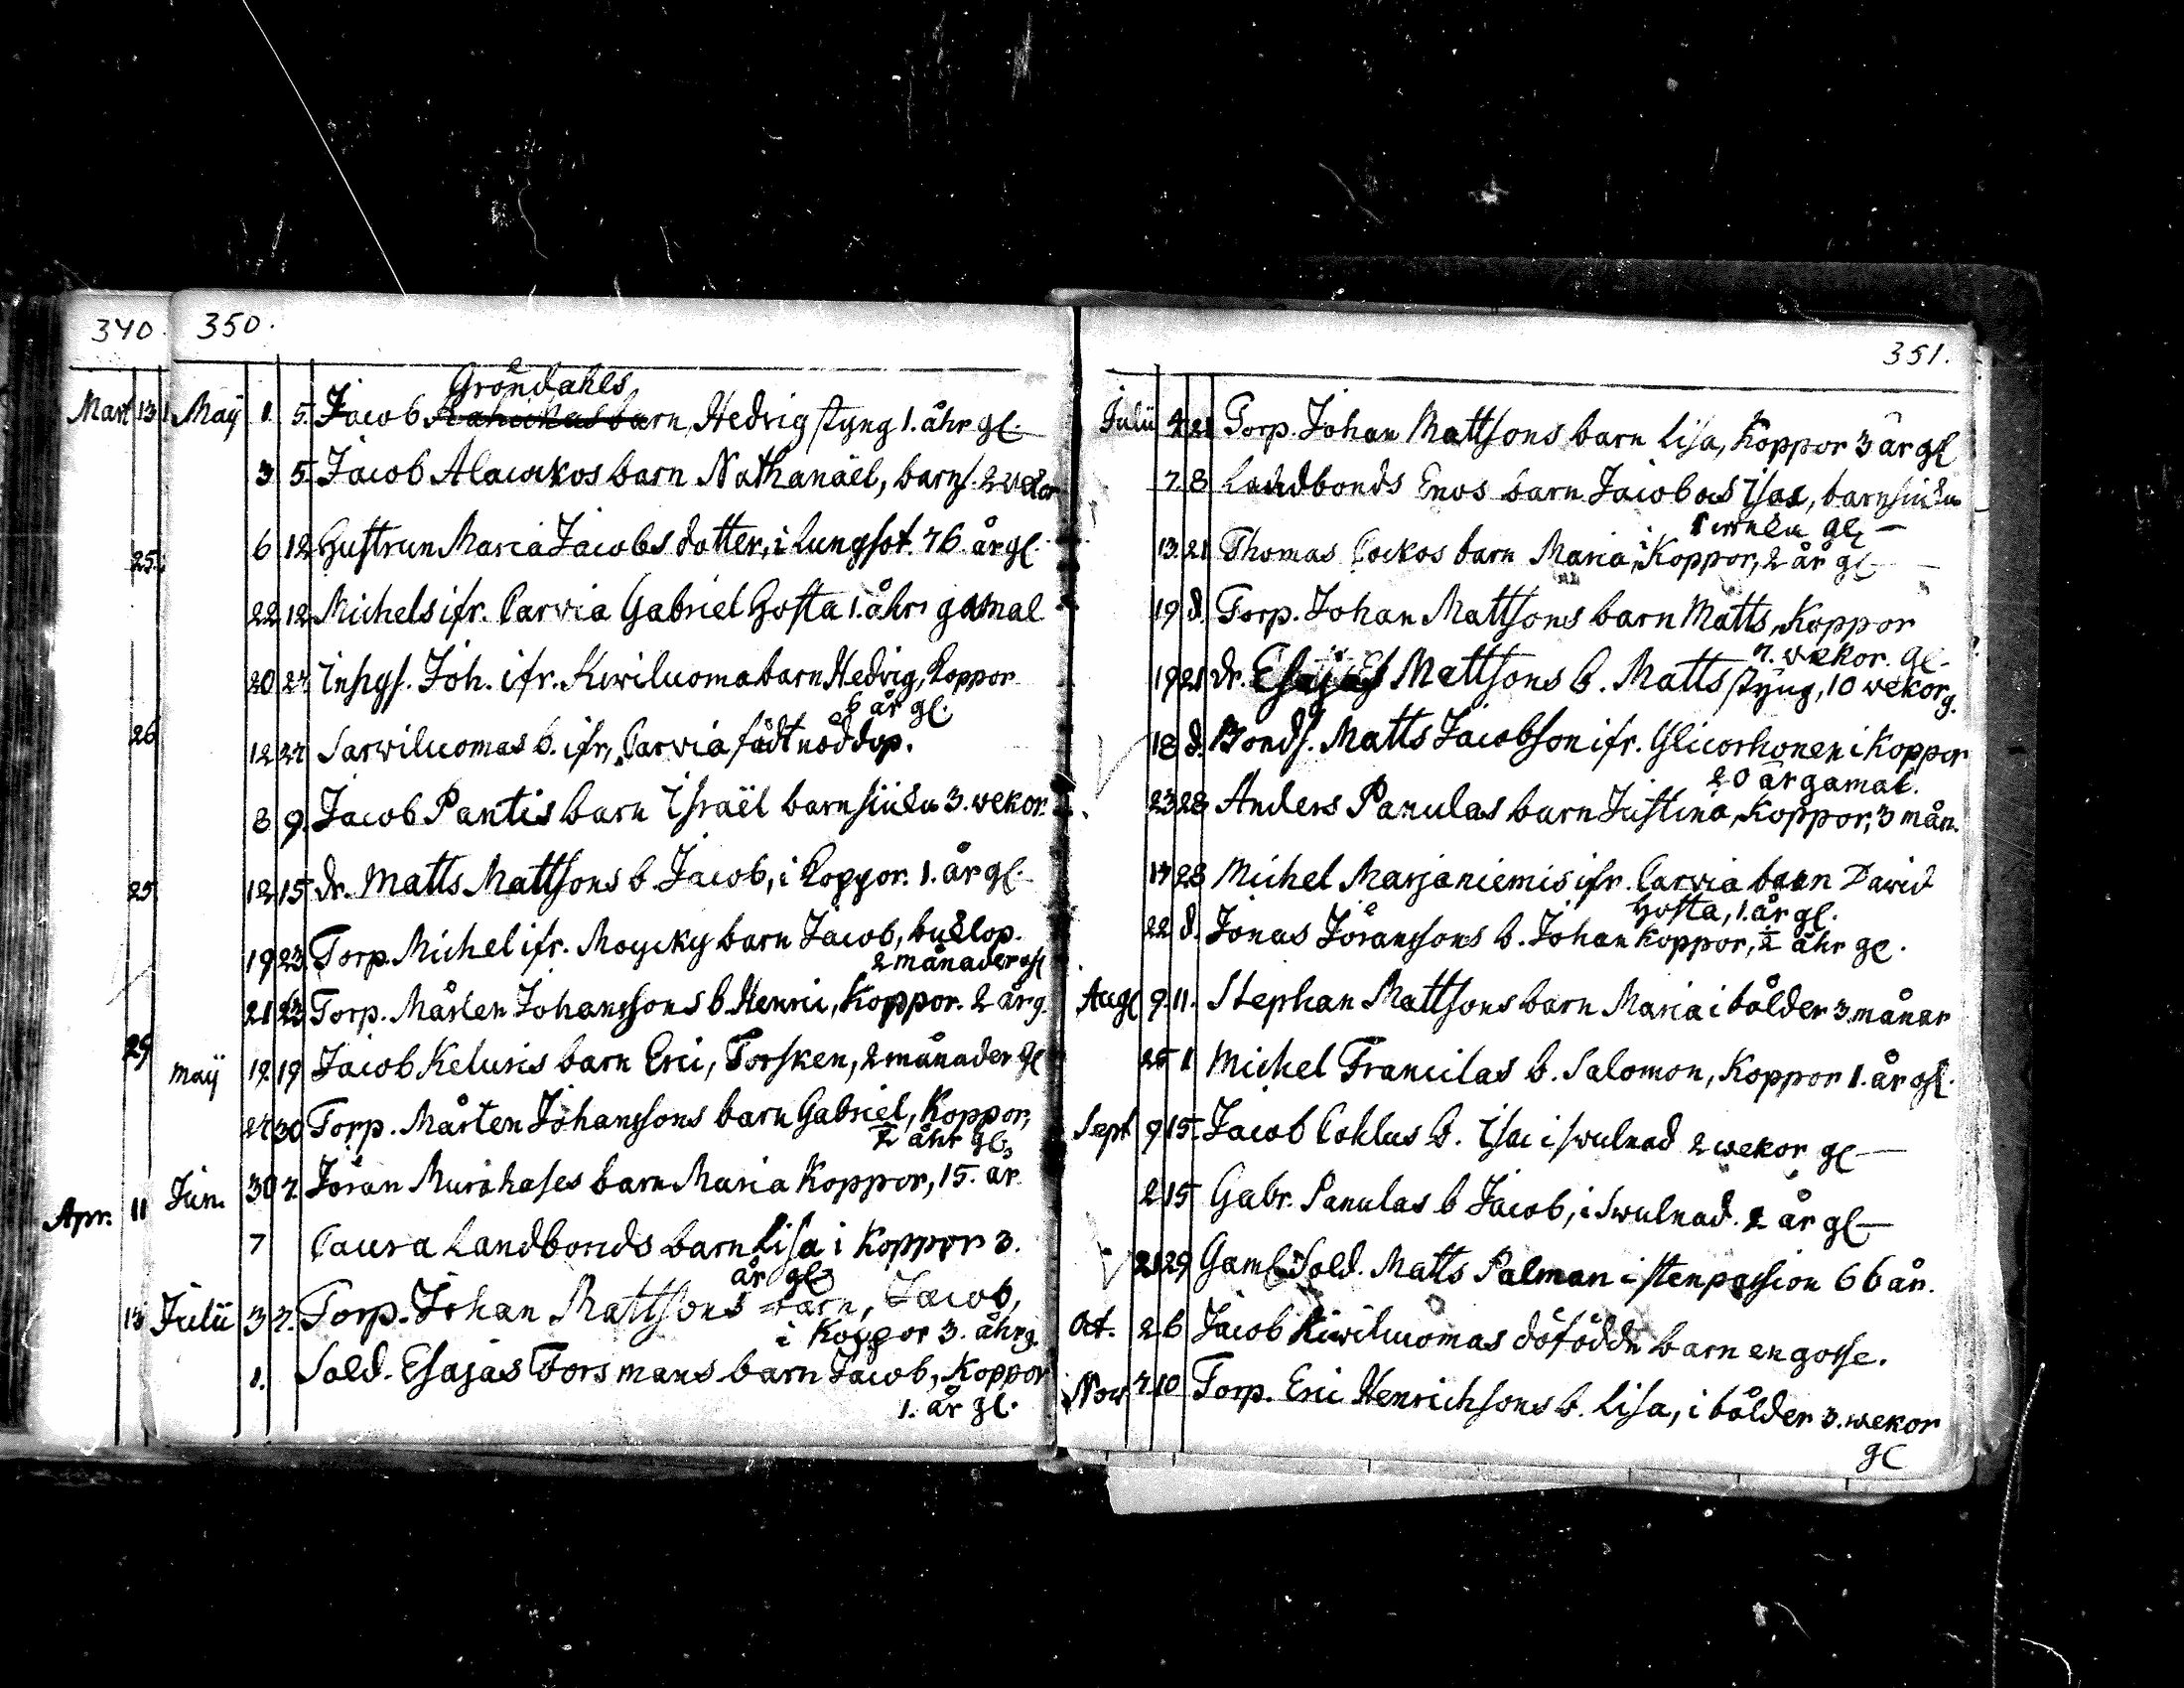 340.
Mart 13
25.
26
25
29
Apr. 11
13
350.
Gröndahls
Maÿ 1. 5. Jacob barn, Hedvig styng 1. åhr gl.
3 5. Jacob Alacokos barn Nathanaël, barns. 2 wekor
6 12 Hustrun Maria Jacobs dotter, i lungsot. 76 år gl.
22 12 Michels ifr. Carvia Gabriel Hosta 1. åhr gamal
20 27 Inhys. Joh. ifr. Kiviluoma barn Hedvig, Koppor
6 år gl.
12 27 Sarviluomas b. ifr. Carvia födt nöddop.
8 9. Jacob Pantis barn Israël barnsiuka 3. wekor.
12 15 dr. Matts Mattsons b Jacob, i Koppor. 1. år gl.
19 23. Torp. Michel ifr. Moycky barn Jacob, buklop.
2 månader gl
21 23 Torp. Mårten Johanssons b. Henric, Koppor. 2 år g.
maÿ 12 19 Jacob Keluris barn Eric, Torsken, 2 månader gl
27 30 Torp. Mårten Johanssons barn Gabriel, Koppor,
½ åhr gl
Jun. 30 7. Jöran Murahases barn Maria Koppor, 15. år
7 Caura Landbonds barn Lisa i Koppor 3.
år gl
Julii 3 7. Torp. Johan Mattsons barn, Jacob,
i Koppor 3. åhr g.
1. Sold. Esajas Forsmans barn Jacob, Koppor
1. år gl.
351.
Julii 4 21 Torp. Johan Mattsons barn Lisa, Koppor 3 år gl
7 8 Landbonds Enos barn Jacob och Isac, barnsiuka
1 weka gl
13. 21 Thomas Cockos barn Maria, i Koppor, 2 år gl
19 d. Torp. Johan Mattsons barn Matts, Koppor
7. wekor. gl
19 21 dr. Esajas Mattsons b. Matts styng, 10 wekor g.
18 d. Bonds. Matts Jacobson ifr. i Koppor
20 år gamal.
23 28 Anders Panulas barn Justina, Koppor, 3 mån.
17 28 Michel Marjaniemis ifr. Carvia barn David
Hosta, 1. år gl.
22 d. Jonas Jöranssons b. Johan Koppor, ½ åhr gl.
Aug 9. 11. Stephan Mattsons barn Maria i bålder 3. månar
25 1 Michel Francilas b. Salomon, Koppor 1. år gl.
Sept 9 15. Jacob Coklus b. Isac i swulnad 2 wekor gl
2 15 Gabr. Panulas b Jacob, i swulnad. 2 år gl
21 29 Gaml. Sold. Matts Palman i stenpassion 66 år.
Oct. 2 6 Jacob Kiwiluomas döfödde barn en gosse.
Nov 7 10 Torp. Eric Henrichsons b. Lisa, i bålder 3. wekor
gl